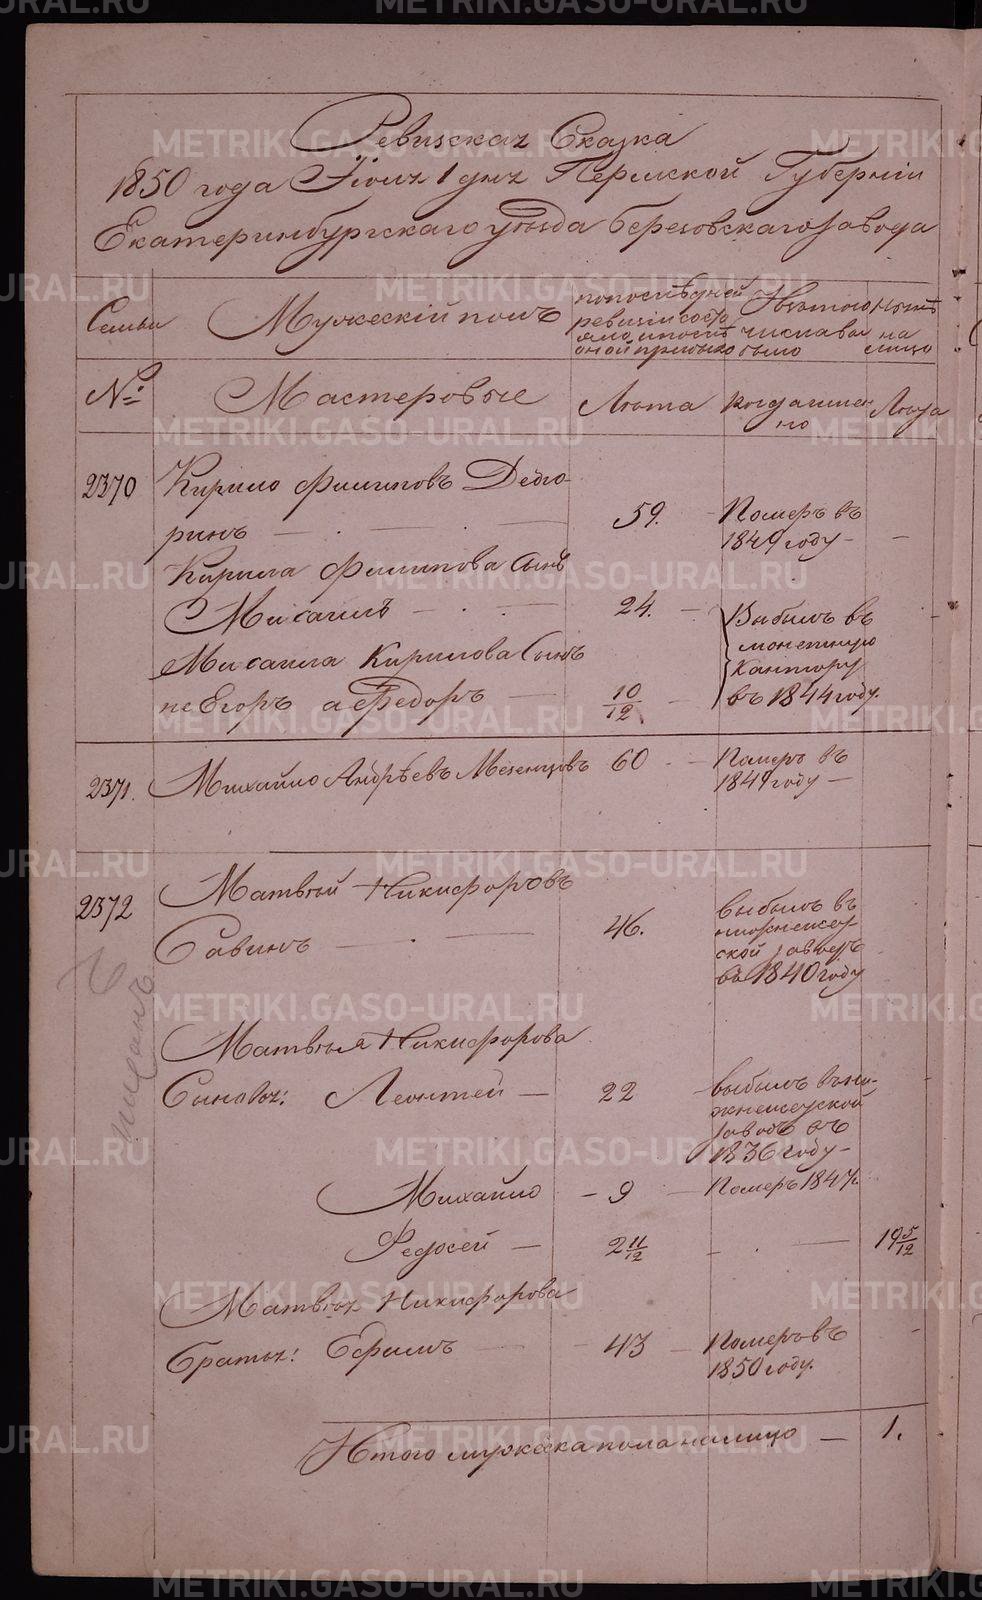 Ревизская Сказка
1850 года Iюля 1 дня Пермской Губернiи
Екатеринбургского уѣзда Березовскаго завода
Семьи
Мужескiй полъ
по послѣдней ревизiи состояло и послѣ оной прибыло
Изъ того числа выбыло
Нынѣ на лицо
№:
Мастеровые
Лѣта
Когда именно
Лѣта
2370
Кирило Филиповъ Дедю-
ринъ
59.
Померъ въ
1849 году
Кирила Филипова Сынъ
Мисаилъ
24.
Выбылъ въ
монетную
Кантору
въ 1844 году.
Мисаила Кирилова Сынъ
не Егоръ а Федоръ
10/12
2371.
Михайло Андрѣевъ Мезенцовъ
60
Померъ въ
1849 году
2372
Матвѣй Никифоровъ
Савинъ
46.
выбылъ въ
нижнеисет-
ской заводъ
въ 1840 году
Матвѣя Никифорова
Сыновья: Леонтей
22
выбылъ въ ни-
жнеисетской
заводъ въ
1836 году
Михайло
9
Померъ 1847.
Федосей
2 11/12
19 5/12
Матвѣя Никифорова
Братья: Ефимъ
43
Померъ въ
1850 году.
Итого мужеска пола на лицо
1.
METRIKI.GASO-URAL.RU